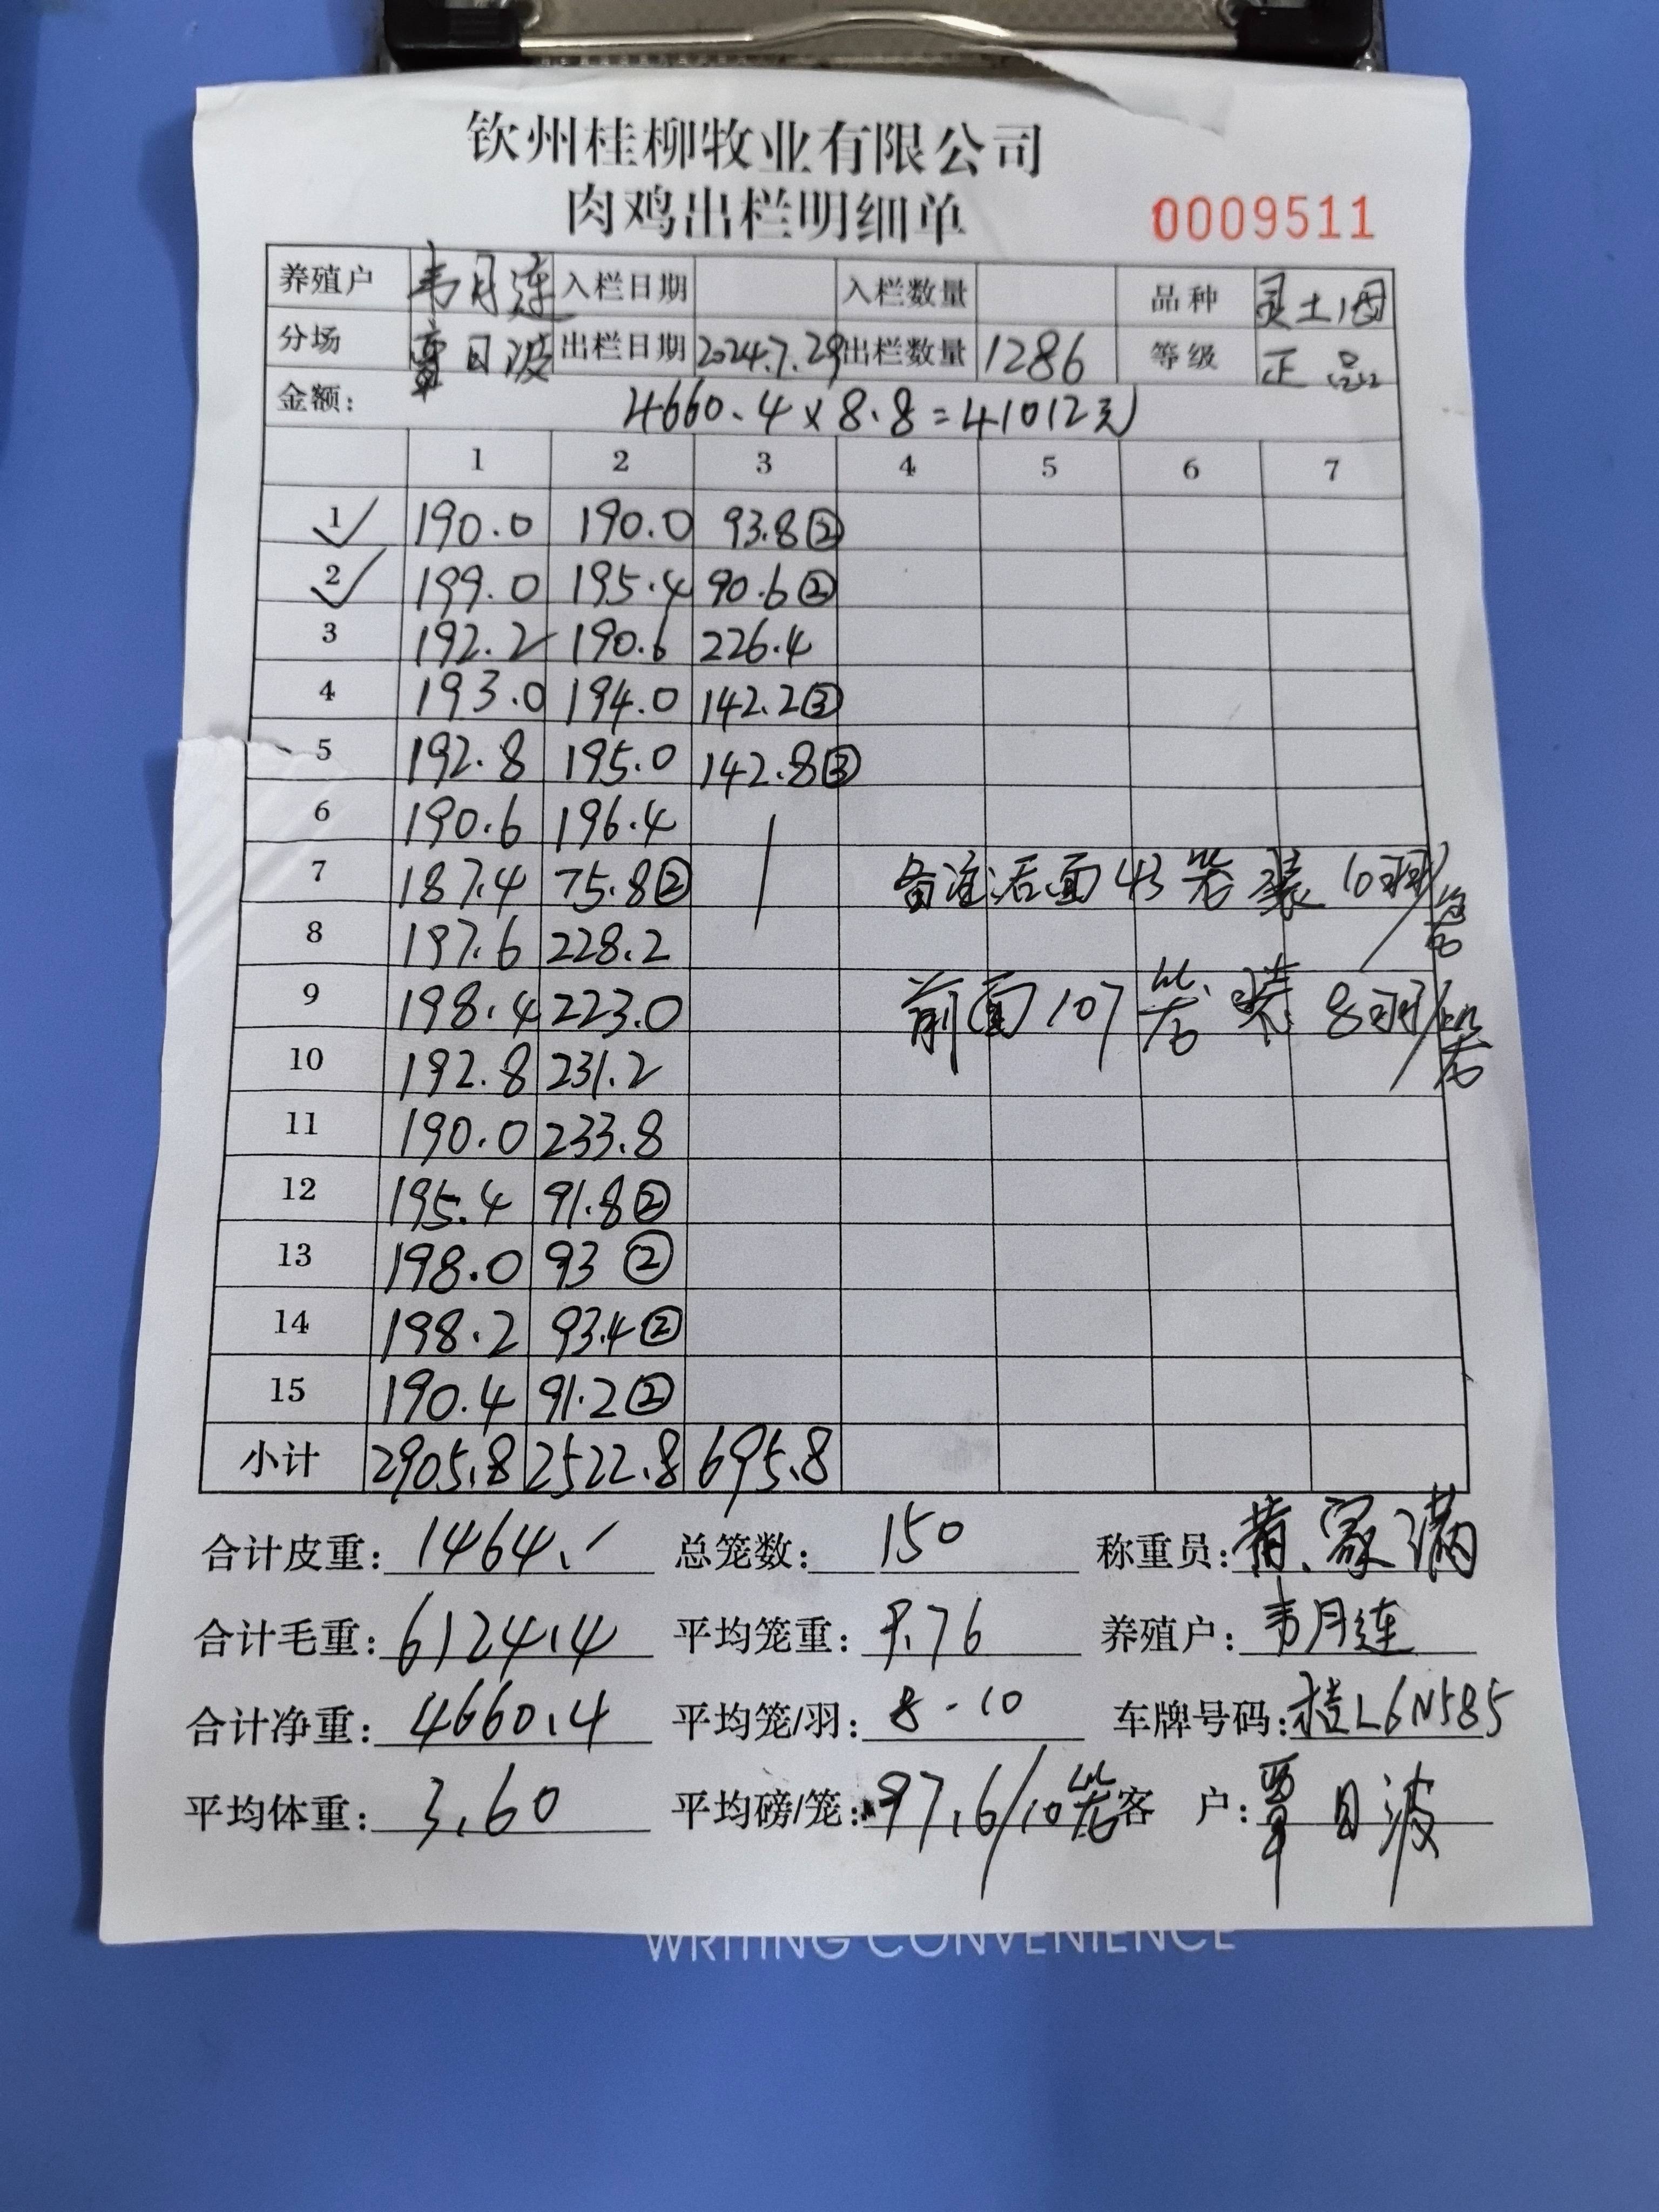 钦州桂柳牧业有限公司
肉鸡出栏明细单 0009511
养殖户 韦月连 入栏日期 入栏数量 品种 灵土1母
分场 覃日波 出栏日期 2024.7.29 出栏数量 1286 等级 正品
金额： 4660.4×8.8=41012元
1 2 3 4 5 6 7
1 190.0 190.0 93.8②
2 199.0 195.4 90.6②
3 192.2 190.6 226.4
4 193.0 194.0 142.2③
5 192.8 195.0 142.8③
6 190.6 196.4
7 187.4 75.8② 备注:后面43笼装10羽/笼
8 197.6 228.2
9 198.4 223.0 前面107笼装8羽/笼
10 192.8 231.2
11 190.0 233.8
12 195.4 91.8②
13 198.0 93②
14 198.2 93.4②
15 190.4 91.2②
小计 2905.8 2522.8 695.8
合计皮重： 1464. 总笼数： 150 称重员： 黄家满
合计毛重： 6124.4 平均笼重： 9.76 养殖户： 韦月连
合计净重： 4660.4 平均笼/羽： 8-10 车牌号码： 桂L6N585
平均体重： 3.60 平均磅/笼： 97.6/10笼 客户： 覃日波
WRITING CONVENIENCE